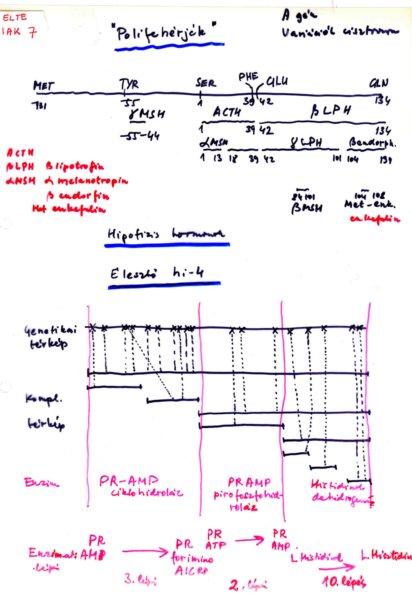 ELTE
IAK 7
"Polifehérjék"
A gén
Variációk cisztronra
MET TYR SER PHE GLU GLN
-131 -55 1 39 42 134
γMSH ACTH βLPH
-55-44 1 39 42 134
αMSH γLPH βendorph.
1 13 18 39 42 101 104 134
ACTH
βLPH β lipotrofin
αMSH α melanotropin
β endorfin
Met enkefalin
84 101 104 108
βMSH Met-enk.
enkefalin
Hipofizis hormonok
Élesztő hi-4
Genetikai
térkép
Kompl.
térkép
Enzim
PR-AMP PRAMP Histidinol
ciklohidroláz pirofoszfohid- dehidrogenáz
roláz
PR PR PR PR
AMP forimino ATP AMP L Histidinol L Hisztidin
AICRP
3. lépés 2. lépés 10. lépés